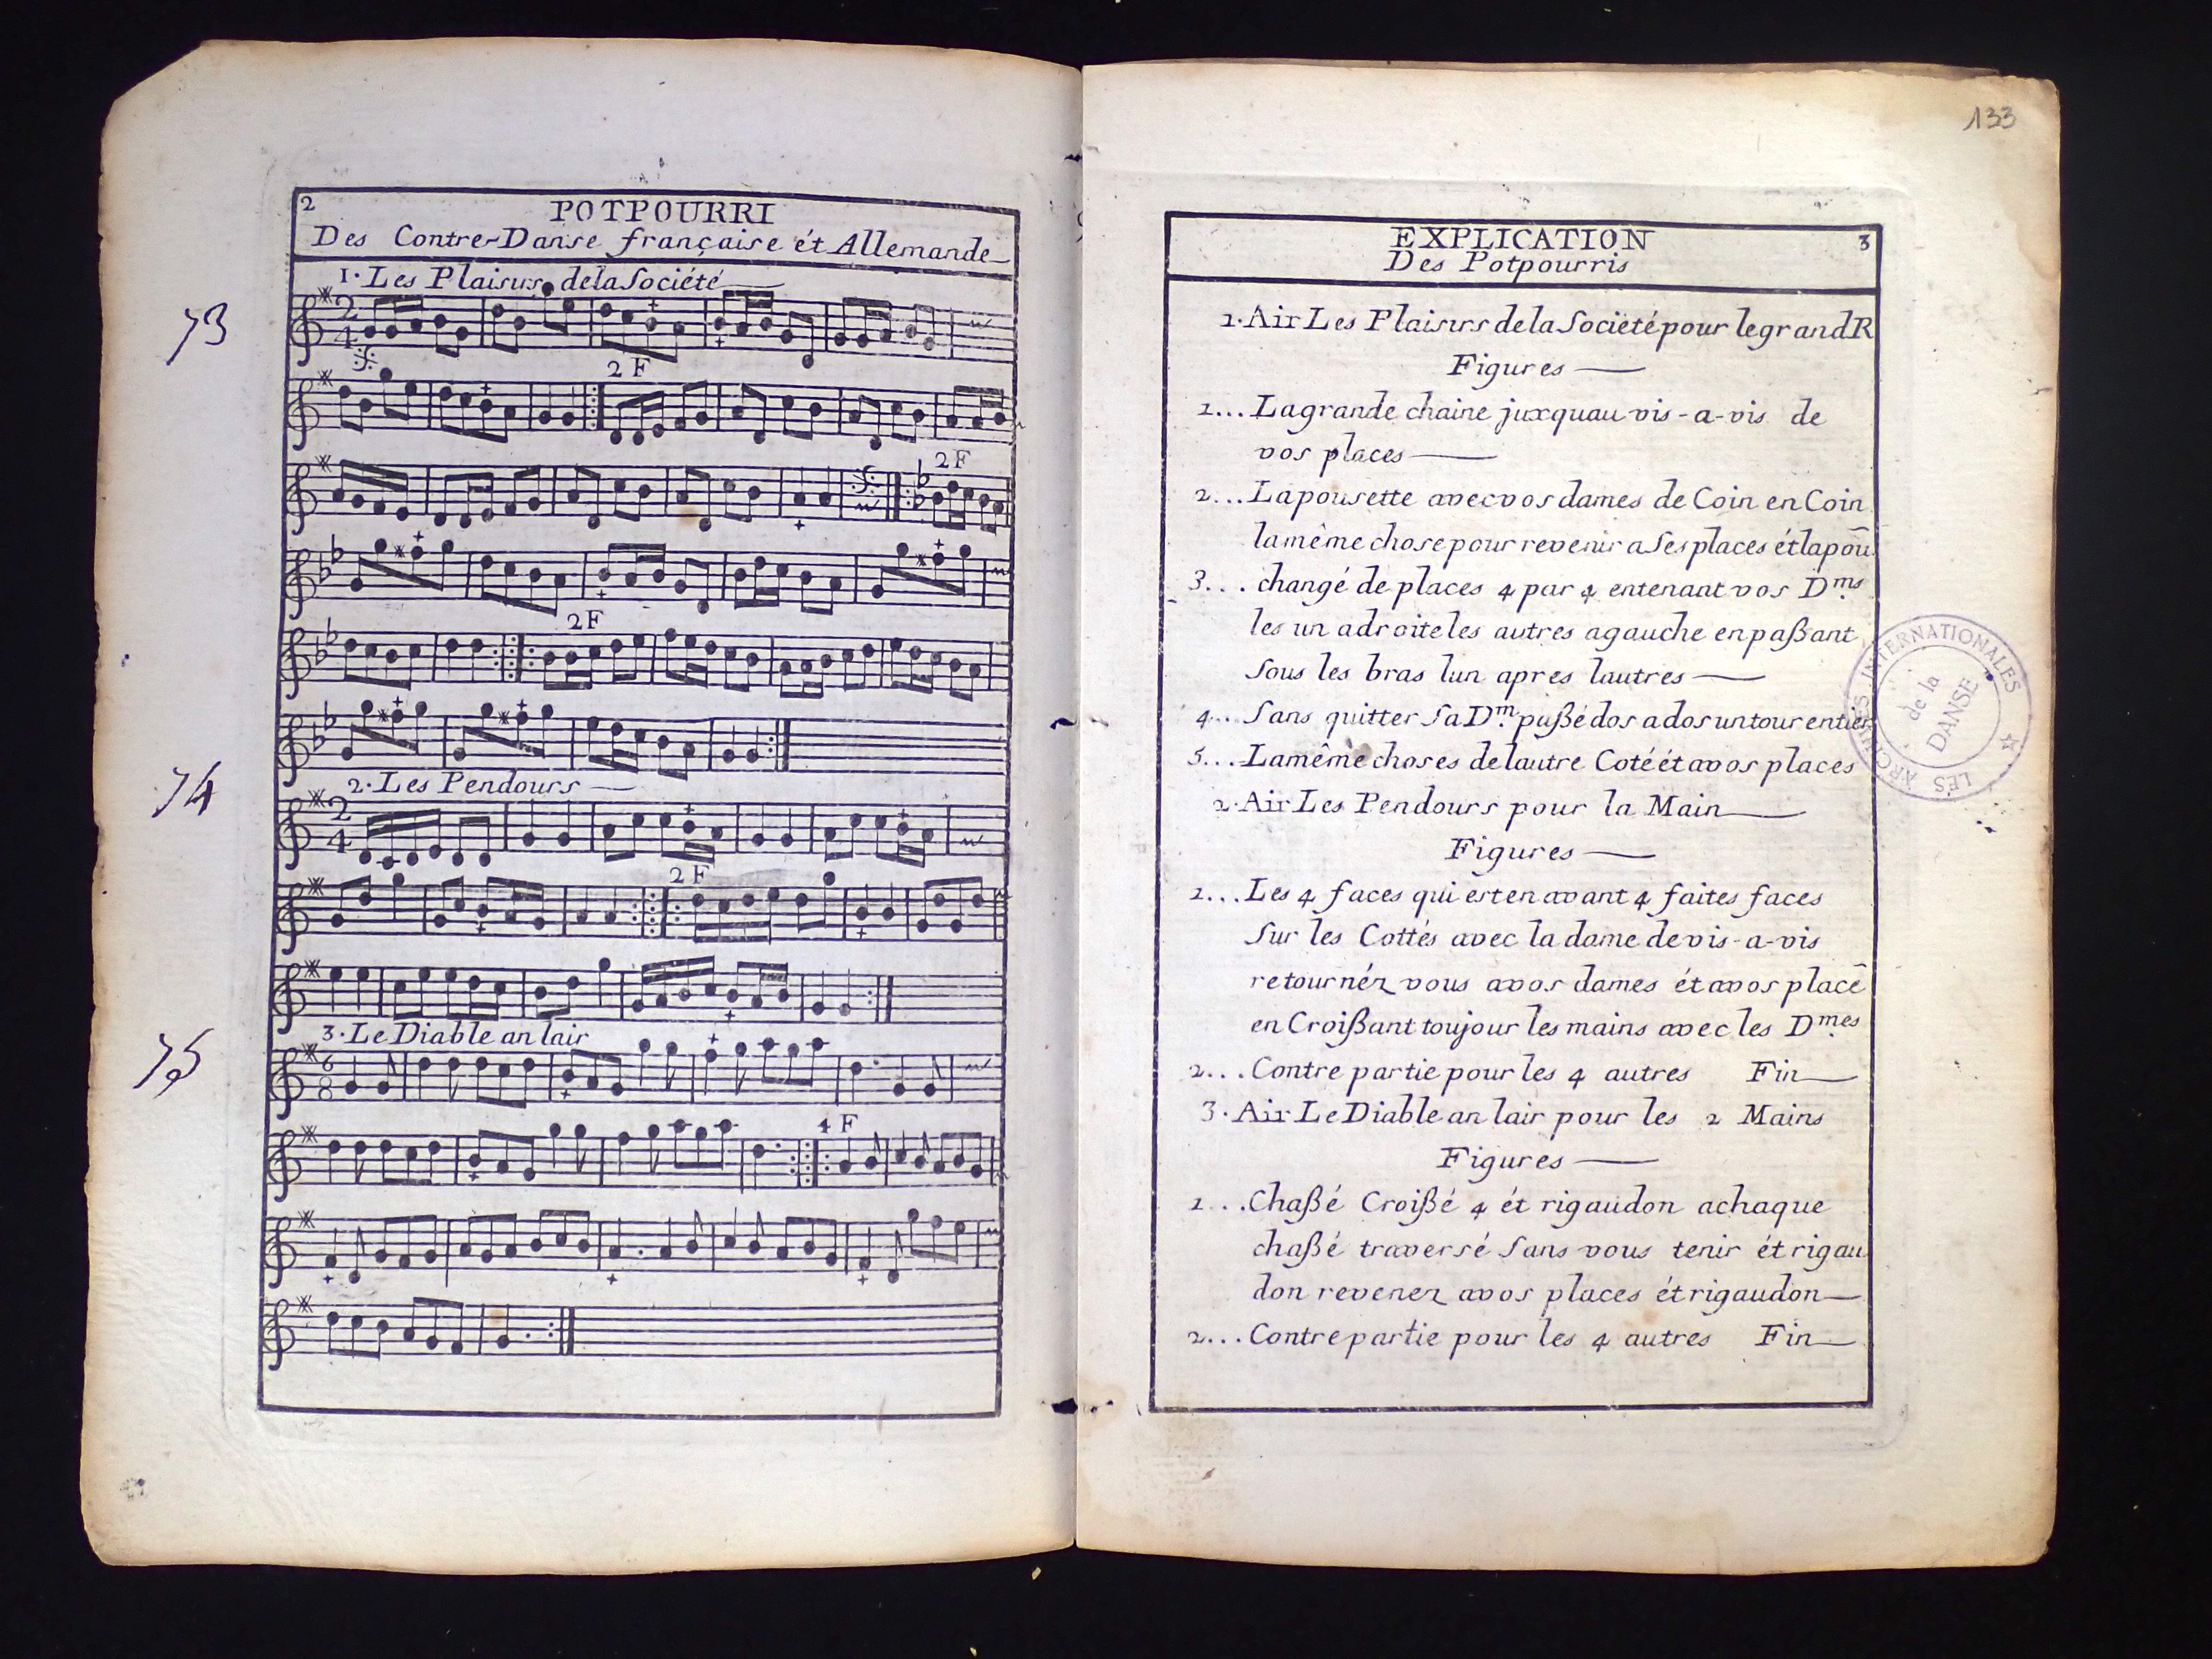 2
POTPOURRI
Des Contre-Danse française ét Allemande
73
1. Les Plaisirs de la Société
2 F
2 F
2 F
74
2. Les Pendours
2 F
75
3. Le Diable an lair
4 F
133
EXPLICATION 3
Des Potpourris
1. Air Les Plaisirs de la Société pour le grand R
Figures
1... La grande chaine juxquau vis-a-vis de
vos places
2... La pousette avec vos dames de Coin en Coin
la même chose pour revenir a Ses places ét la pou
3... changé de places 4 par 4 en tenant vos D.ms
les un a droite les autres a gauche en paßant
Sous les bras lun apres lautres
4... Sans quitter Sa D.m paßé dos a dos un tour entier
5... La même choses de lautre Coté ét a vos places
2. Air Les Pendours pour la Main
Figures
1... Les 4 faces qui est en avant 4 faites faces
Sur les Cottés avec la dame de vis-a-vis
retournéz vous a vos dames ét a vos placẽ
en Croißant toujour les mains avec les D.mes
2... Contre partie pour les 4 autres Fin
3. Air Le Diable an lair pour les 2 Mains
Figures
1... Chaßé Croißé 4 ét rigaudon a chaque
chaßé traversé Sans vous tenir ét rigau
don revenez a vos places ét rigaudon
2... Contre partie pour les 4 autres Fin
LES ARCHIVES INTERNATIONALES
de la
DANSE